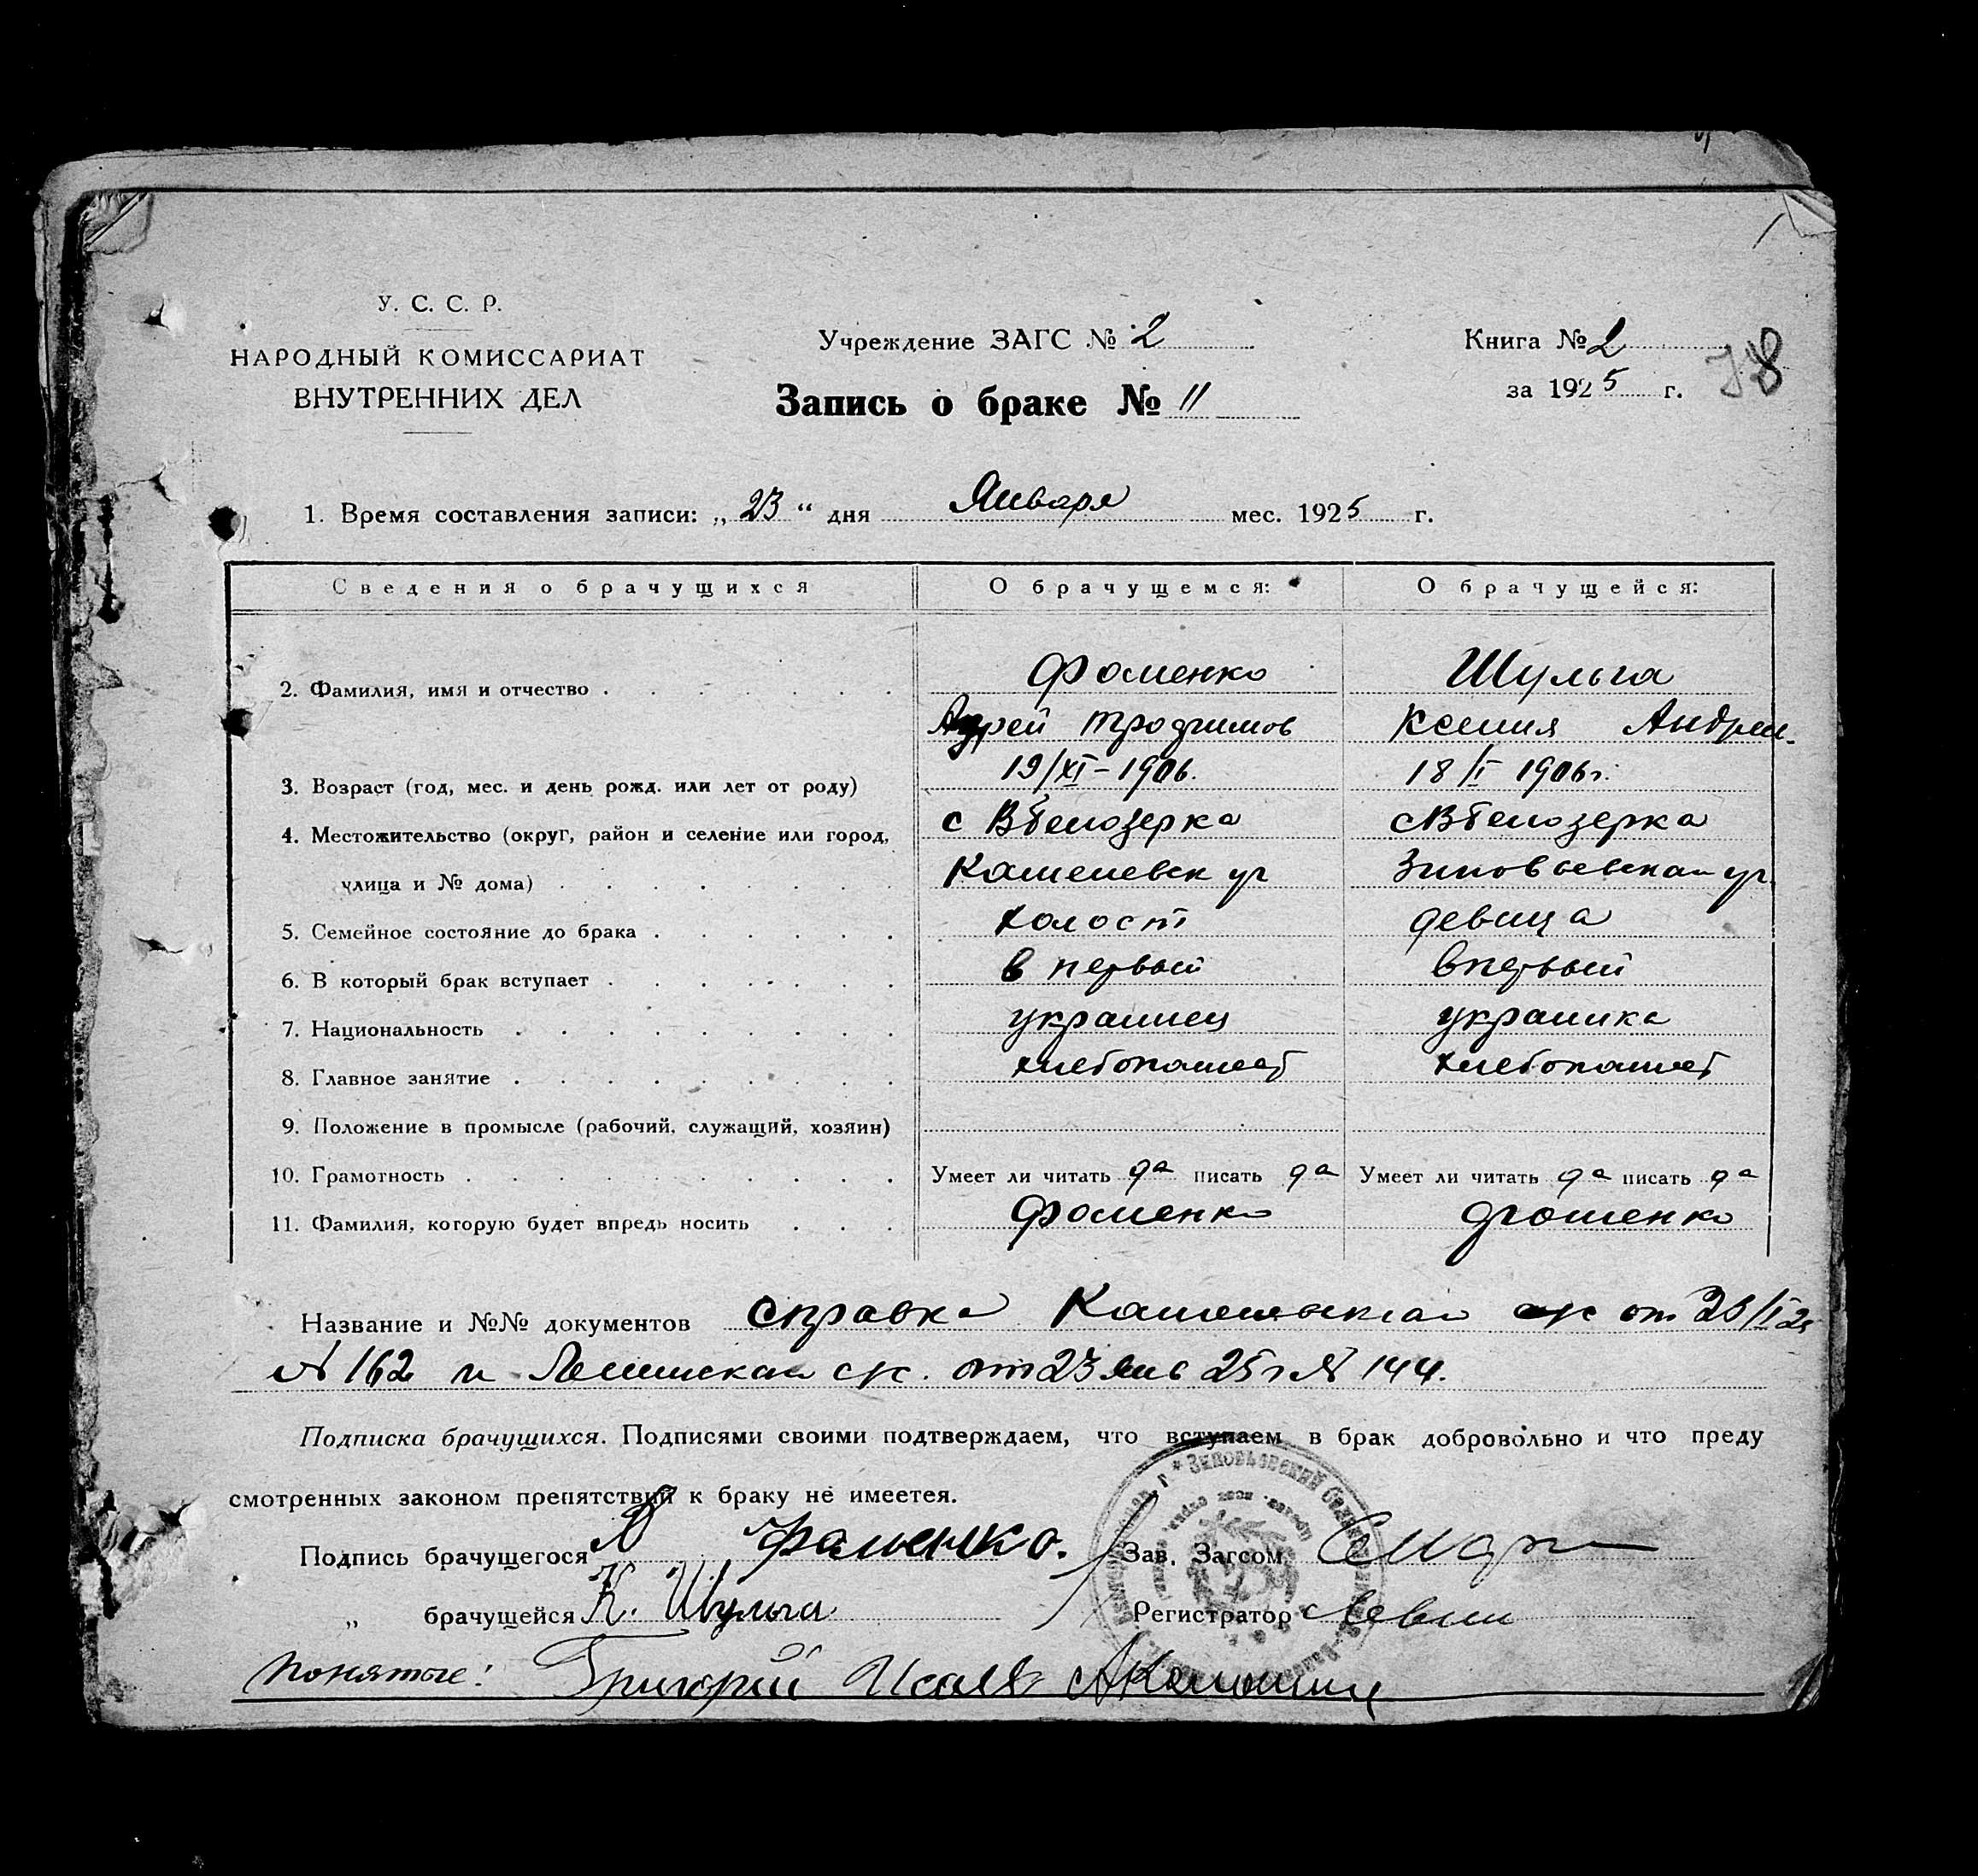 У. С. С. Р.
НАРОДНЫЙ КОМИССАРИАТ
ВНУТРЕННИХ ДЕЛ
Учреждение ЗАГС № 2
Запись о браке № 11
Книга № 2
за 1925 г.
78
1. Время составления записи: „23“ дня Января мес. 1925 г.
Сведения о брачущихся О брачущемся: О брачущейся:
2. Фамилия, имя и отчество Фоменко Шульга
Андрей Трофимов Ксения Андреи.
3. Возраст (год, мес. и день рожд. или лет от роду) 19/XI-1906. 18/I 1906г.
4. Местожительство (округ, район и селение или город, с ВБелозерка с ВБелозерка
улица и № дома) Зиновьевская ул.
5. Семейное состояние до брака холост девица
6. В который брак вступает в первый впервый
7. Национальность украинец украинка
8. Главное занятие хлебопашеб хлебопашеб
9. Положение в промысле (рабочий, служащий, хозяин)
10. Грамотность Умеет ли читать да писать да Умеет ли читать да писать да
11. Фамилия, которую будет впредь носить Фоменко Фоменко
Название и №№ документов справка от 23/I 25
№ 162 и Ленинская от 23 янв 25 г № 144.
Подписка брачущихся. Подписями своими подтверждаем, что вступаем в брак добровольно и что преду
смотренных законом препятствий к браку не имеетея.
Подпись брачущегося Фаменко. Зав. Загсом
„ брачущейся К. Шульга Регистратор Левин
Понятые: Григорий